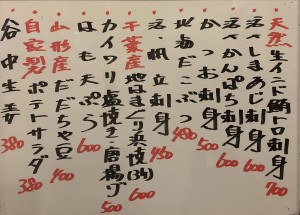 天然生インド鮪トロ刺身 700
活〆しまあじ刺身 600
活〆かんぱち刺身 600
かつお刺身 500
北海だこぶつ 480
活・帆立刺身 450
千葉産地はまぐり浜焼(3ヶ) 600
カイワリ塩焼き・唐揚げ 500
はも天ぷら 600
山形産だだちゃ豆 400
自家製ポテトサラダ 380
谷中生姜 380